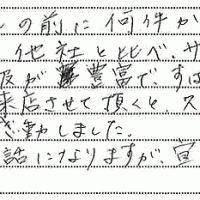 の前に何件か
他社と比べ、サ
が豊富です。すば
来店させて頂くと、ス
感動しました。
話になりますが、宜